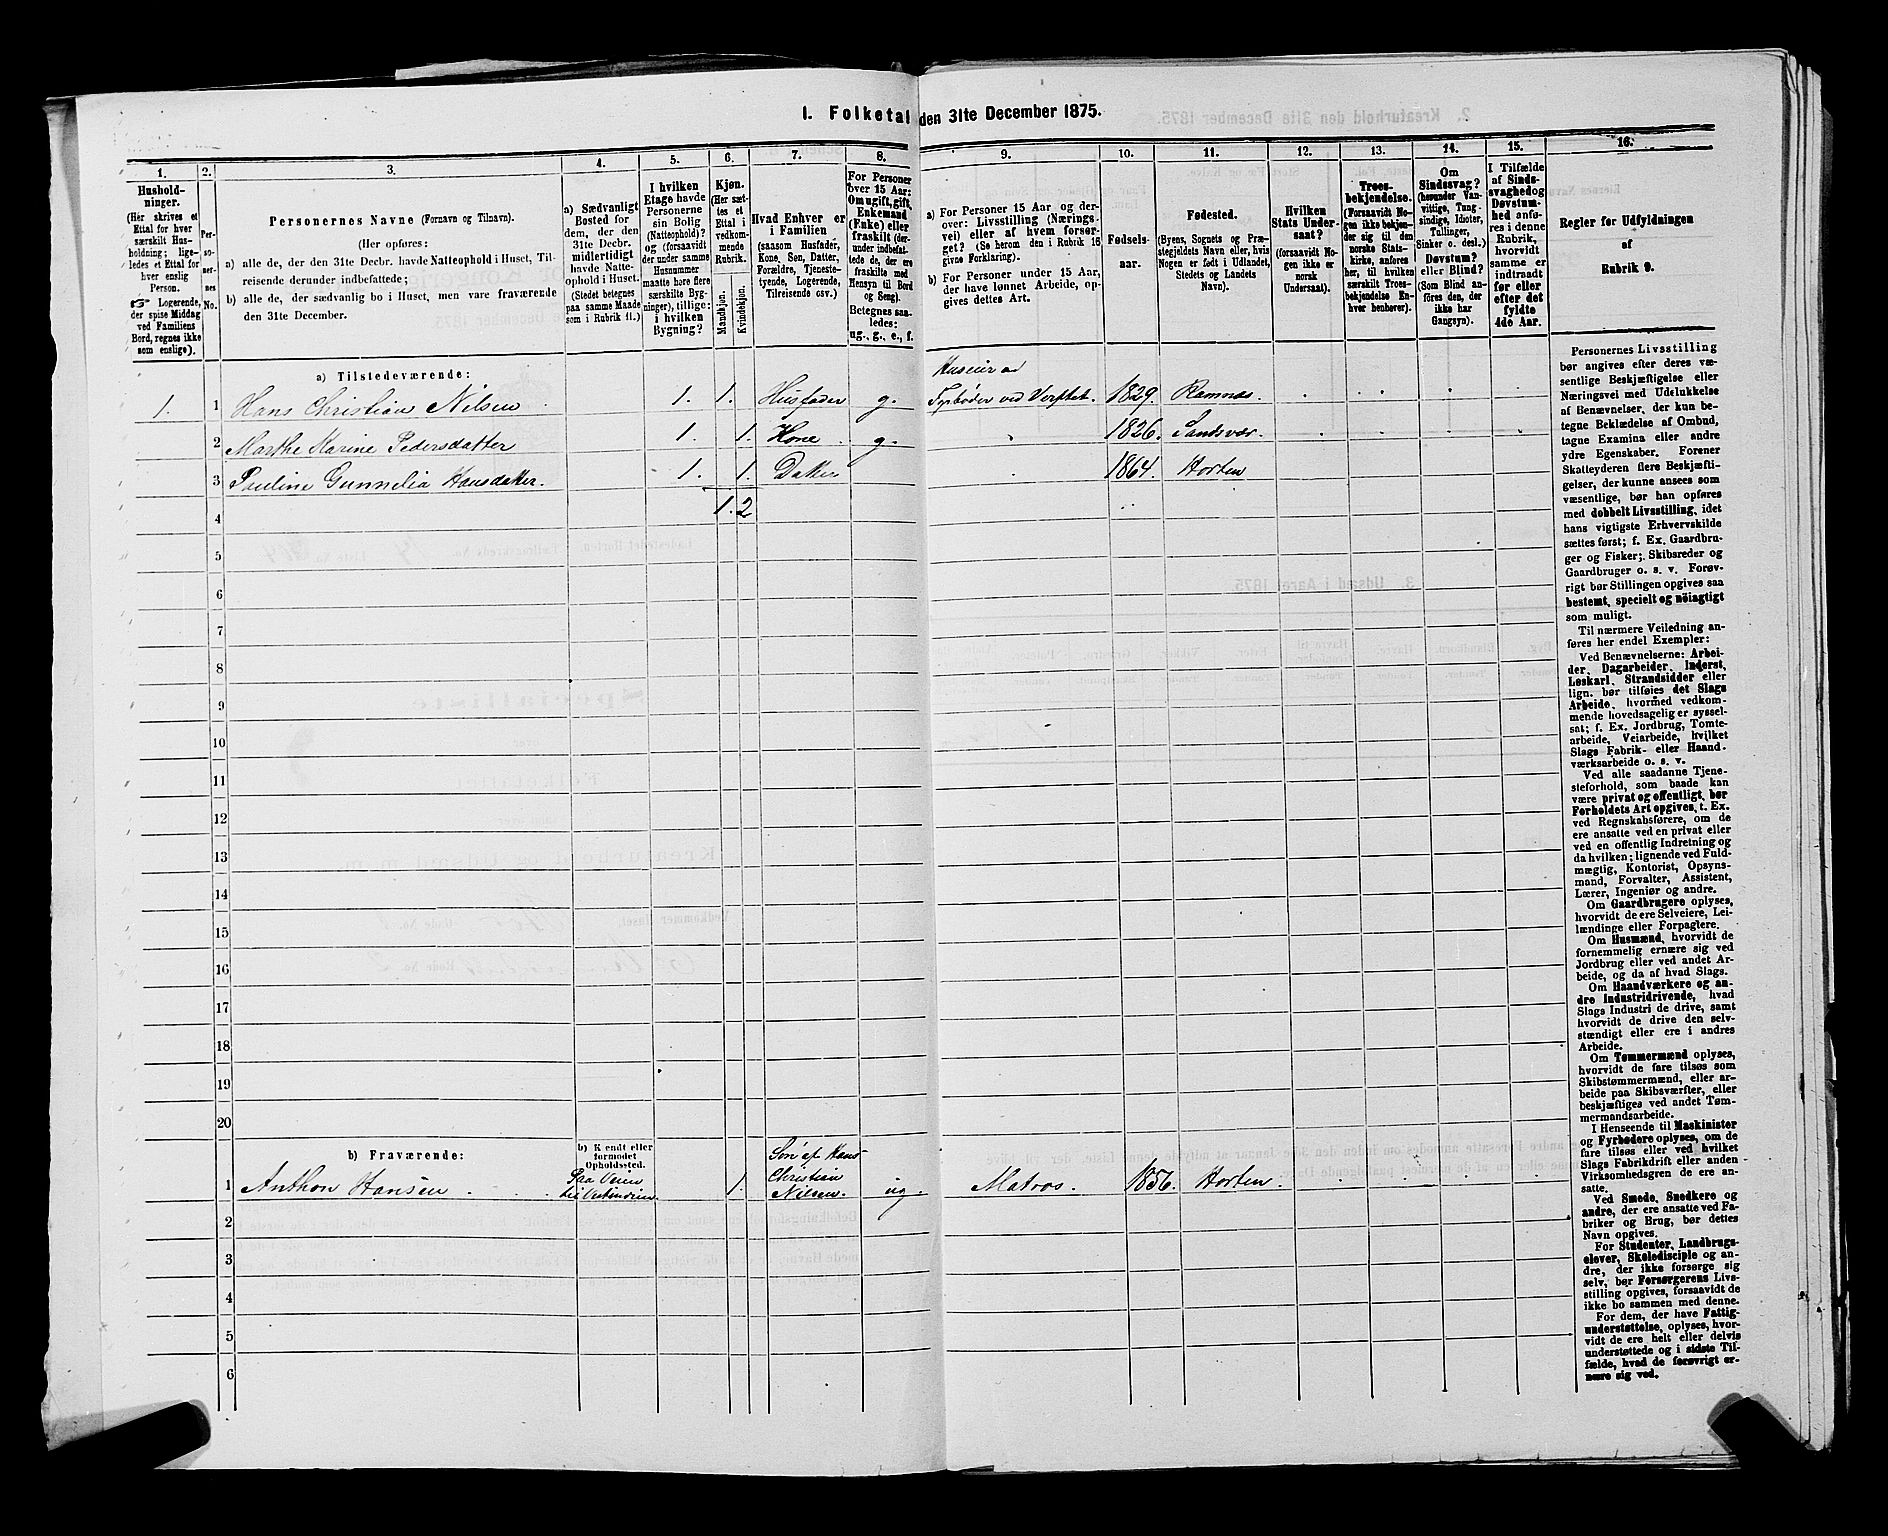 1. Folketal den 31te December 1875.
1.
Hushold-
ninger.
(Her skrives et
Ettal for hver
særskilt Hus-
holdning; lige-
ledes et Ettal for
hver enslig
Person.
☞ Logerende,
der spise Middag
ved Familiens
Bord, regnes ikke
som enslige).
2.
Per-
so-
ner-
nes
No.
3.
Personernes Navne (Fornavn og Tilnavn).
(Her opføres:
a) alle de, der den 31te Decbr. havde Natteophold i Huset, Til-
reisende derunder indbefattede;
b) alle de, der sædvanlig bo i Huset, men vare fraværende
den 31te December.
4.
a) Sædvanligt
Bosted for
dem, der den
31te Decbr.
midlertidigt
havde Natte-
ophold i Huset.
(Stedet betegnes
paa samme Maade
som i Rubrik 11.)
5.
I hvilken
Etage havde
Personerne
sin Bolig
(Natteophold)?
og (forsaavidt
der under samme
Husnummer
maatte høre flere
særskilte Byg-
ninger), tillige:
i hvilken
Bygning?
6.
Kjøn.
(Her sæt-
tes et
Ettal i
vedkom-
mende
Rubrik.
Mandkjøn.
Kvindekjøn.
7.
Hvad Enhver er
i Familien
(saasom Husfader,
Kone, Søn, Datter,
Forældre, Tjeneste-
tyende, Logerende,
Tilreisende osv.)
8.
For Personer
over 15 Aar:
Om ugift, gift,
Enkemand
(Enke) eller
fraskilt (der-
under indbefat-
tede de, der ere
fraskilte med
Hensyn til Bord
og Seng).
Betegnes saa-
ledes:
ug., g., e., f.
9.
a) For Personer 15 Aar og der-
over: Livsstilling (Nærings-
vei) eller af hvem forsør-
get? (Se herom den i Rubrik 16
givne Forklaring).
b) For Personer under 15 Aar,
der have lønnet Arbeide, op-
gives dettes Art.
10.
Fødsels-
aar.
11.
Fødested.
(Byens, Sognets og Præ-
stegjeldets Navn eller, hvis
Nogen er født i Udlandet,
Stedets og Landets
Navn).
12.
Hvilken
Stats Under-
saat?
(forsaavidt No-
gen ikke er
norsk
Undersaat).
13.
Troes-
bekjendelse.
(Forsaavidt No-
gen ikke bekjen-
der sig til den
norske Stats-
kirke, anføres
her, til hvilken
særskilt Troes-
bekjendelse En-
hver henhører).
14.
Om
Sindssvag?
(herunder Van-
vittige, Tung-
sindige, Idioter,
Tullinger,
Sinker o. desl.)
Døvstum?
eller Blind?
(Som Blind an-
føres den, der
ikke har
Gangsyn).
15.
I Tilfælde
af Sinds-
svaghed og
Døvstum-
hed anfø-
res i denne
Rubrik,
hvorvidt
samme er
indtraadt
før eller
efter det
fyldte
4de Aar.
16.
Regler for Udfyldningen
af
Rubrik 9.
a) Tilstedeværende:
1. 1 Hans Christian Nilsen 1. 1. Husfader g. Huseier og Fyrbøder ved Verftet. 1829. Ramnæs.
2 Marthe Karine Pedersdatter 1. 1. Kone g. 1826. Sandsvær.
3 Pauline Gunnelia Hansdatter. 1. 1. Datter 1864. Horten
4 1. 2
5
6
7
8
9
10
11
12
13
14
15
16
17
18
19
20
b) Fraværende:
b) Kjendt eller
formodet
Opholdssted.
1 Anthon Hansen Paa Veien til Vestindien. 1. Søn af Hans Christian Nilsen. ug. Matros. 1856. Horten.
2
3
4
5
6
Personernes Livsstilling
bør angives efter deres væ-
sentlige Beskjæftigelse eller
Næringsvei med Udelukkelse
af Benævnelser, der kun be-
tegne Beklædelse af Ombud,
tagne Examina eller andre
ydre Egenskaber. Forener
Skatteyderen flere Beskjæfti-
gelser, der kunne ansees som
væsentlige, bør han opføres
med dobbelt Livsstilling, idet
hans vigtigste Erhvervskilde
sættes først; f. Ex. Gaardbru-
ger og Fisker; Skibsreder og
Gaardbruger o. s. v. Forøv-
rigt bør Stillingen opgives saa
bestemt, specielt og nøiagtigt
som muligt.
Til nærmere Veiledning an-
føres her endel Exempler:
Ved Benævnelserne: Arbei-
der, Dagarbeider, Inderst,
Løskarl, Strandsidder eller
lign. bør tilføies det Slags
Arbeide, hvormed vedkom-
mende hovedsagelig er syssel-
sat; f. Ex. Jordbrug, Tomte-
arbeide, Veiarbeide, hvilket
Slags Fabrik- eller Haand-
værksarbeide o. s. v.
Ved alle saadanne Tjene-
steforhold, som baade kan
være privat og offentligt, bør
Forholdets Art opgives, t. Ex.
ved Regnskabsførere, om de
ere ansatte ved en privat eller
ved en offentlig Indretning og
da hvilken; lignende ved Fuld-
mægtig, Kontorist, Opsyns-
mand, Forvalter, Assistent,
Lærer, Ingeniør og andre.
Om Gaardbrugere oplyses,
hvorvidt de ere Selveiere, Lei-
lændinge eller Forpagtere.
Om Husmænd, hvorvidt de
fornemmelig ernære sig ved
Jordbrug eller ved andet Ar-
beide, og da af hvad Slags.
Om Haandværkere og an-
dre Industridrivende, hvad
Slags Industri de drive, samt
hvorvidt de drive den selv-
stændigt eller ere i andres
Arbeide.
Om Tømmermænd oplyses,
hvorvidt de fare tilsøs som
Skibstømmermænd, eller ar-
beide paa Skibsværfter, eller
beskjæftiges ved andet Tøm-
mermandsarbeide.
I Henseende til Maskinister
og Fyrbødere oplyses, om de
fare tilsøs eller ved hvilket
Slags Fabrikdrift eller anden
Virksomhedsgren de ere an-
satte.
Ved Smede, Snedkere og
andre, der ere ansatte ved Fa-
briker og Brug, bør dettes
Navn opgives.
For Studenter, Landbrugs-
elever, Skoledisciple og an-
dre, der ikke forsørge sig
selv, bør Forsørgerens Livs-
stilling opgives, forsaavidt de
ikke bo sammen med denne.
For dem, der have Fattig-
understøttelse, oplyses, hvor-
vidt de ere helt eller delvis
understøttede og i sidste Til-
fælde, hvad de forøvrigt er-
nære sig ved.